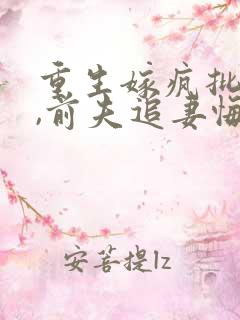 重生嫁疯批
,前夫追妻悔
安菩提lz